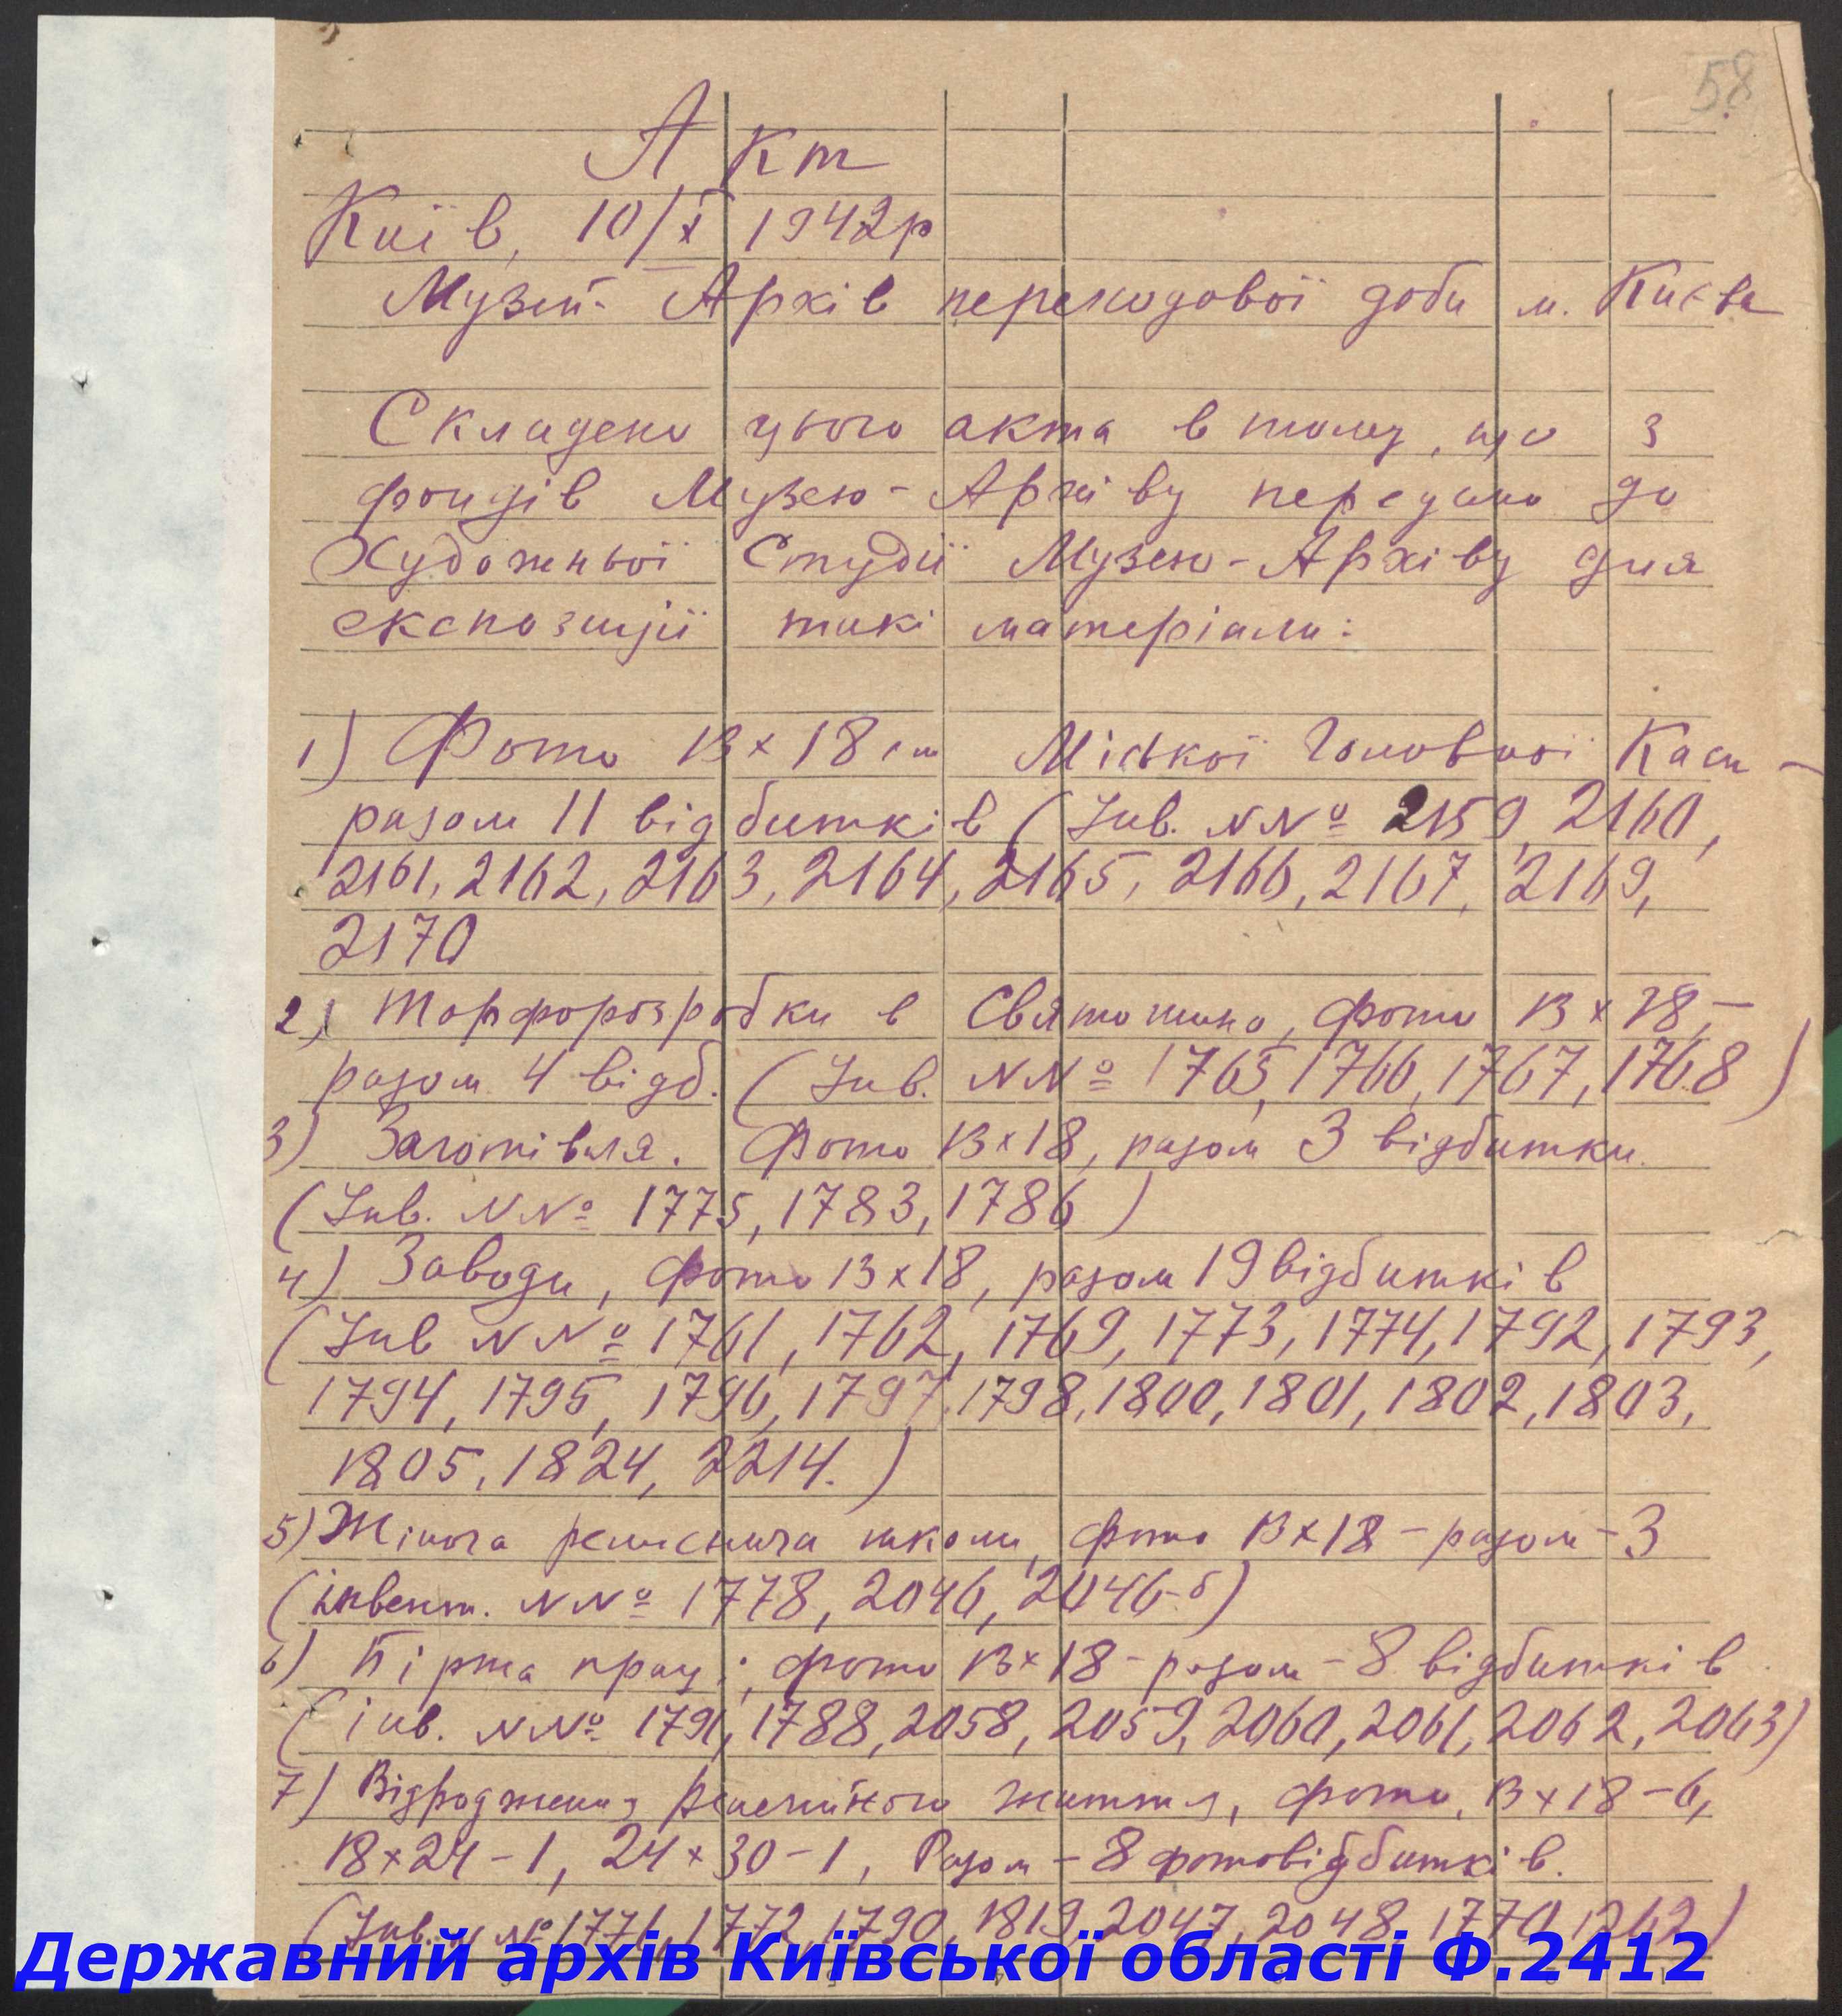 58
Акт
Київ, 10/X 1942р
Музей-Архів переходової доби м. Києва
Складено цього акта в тому, що з
фондів Музею-Архіву передано до
Художньої Студії Музею-Архіву для
експозиції такі матеріали:
1) Фото 13×18 cm Міської Головної Каси -
разом 11 відбитків (Інв. NNº 2159, 2160,
2161, 2162, 2163, 2164, 2165, 2166, 2167, 2169,
2170
2) Торфорозробки в Святошино, фото 13×18, -
разом 4 відб. (Інв. NNº 1765, 1766, 1767, 1768)
3) Заготівля. Фото 13×18, разом 3 відбитки.
(Інв. NNº 1775, 1783, 1786)
4) Заводи, фото 13×18, разом 19 відбитків
(Інв NNº 1761, 1762, 1769, 1773, 1774, 1792, 1793,
1794, 1795, 1796, 1797, 1798, 1800, 1801, 1802, 1803,
1805, 1824, 2214.)
5) Жіноча реміснича школа, фото 13×18 - разом - 3
(інвент. NNº 1778, 2046, 2046-б)
6) Біржа праці, фото 13×18 - разом - 8 відбитків
(інв. NNº 1791, 1788, 2058, 2059, 2060, 2061, 2062, 2063)
7) Відродження релігійного життя, фото, 13×18 - 6,
18×24 - 1, 24×30 - 1, Разом - 8 фотовідбитків.
(Інв. Nº 1771, 1772, 1790, 1819, 2047, 2048, 1770, 1262)
Державний архів Київської області Ф.2412